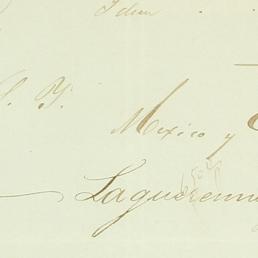 Idem
S. Y.
Mexico y
Laguerenne